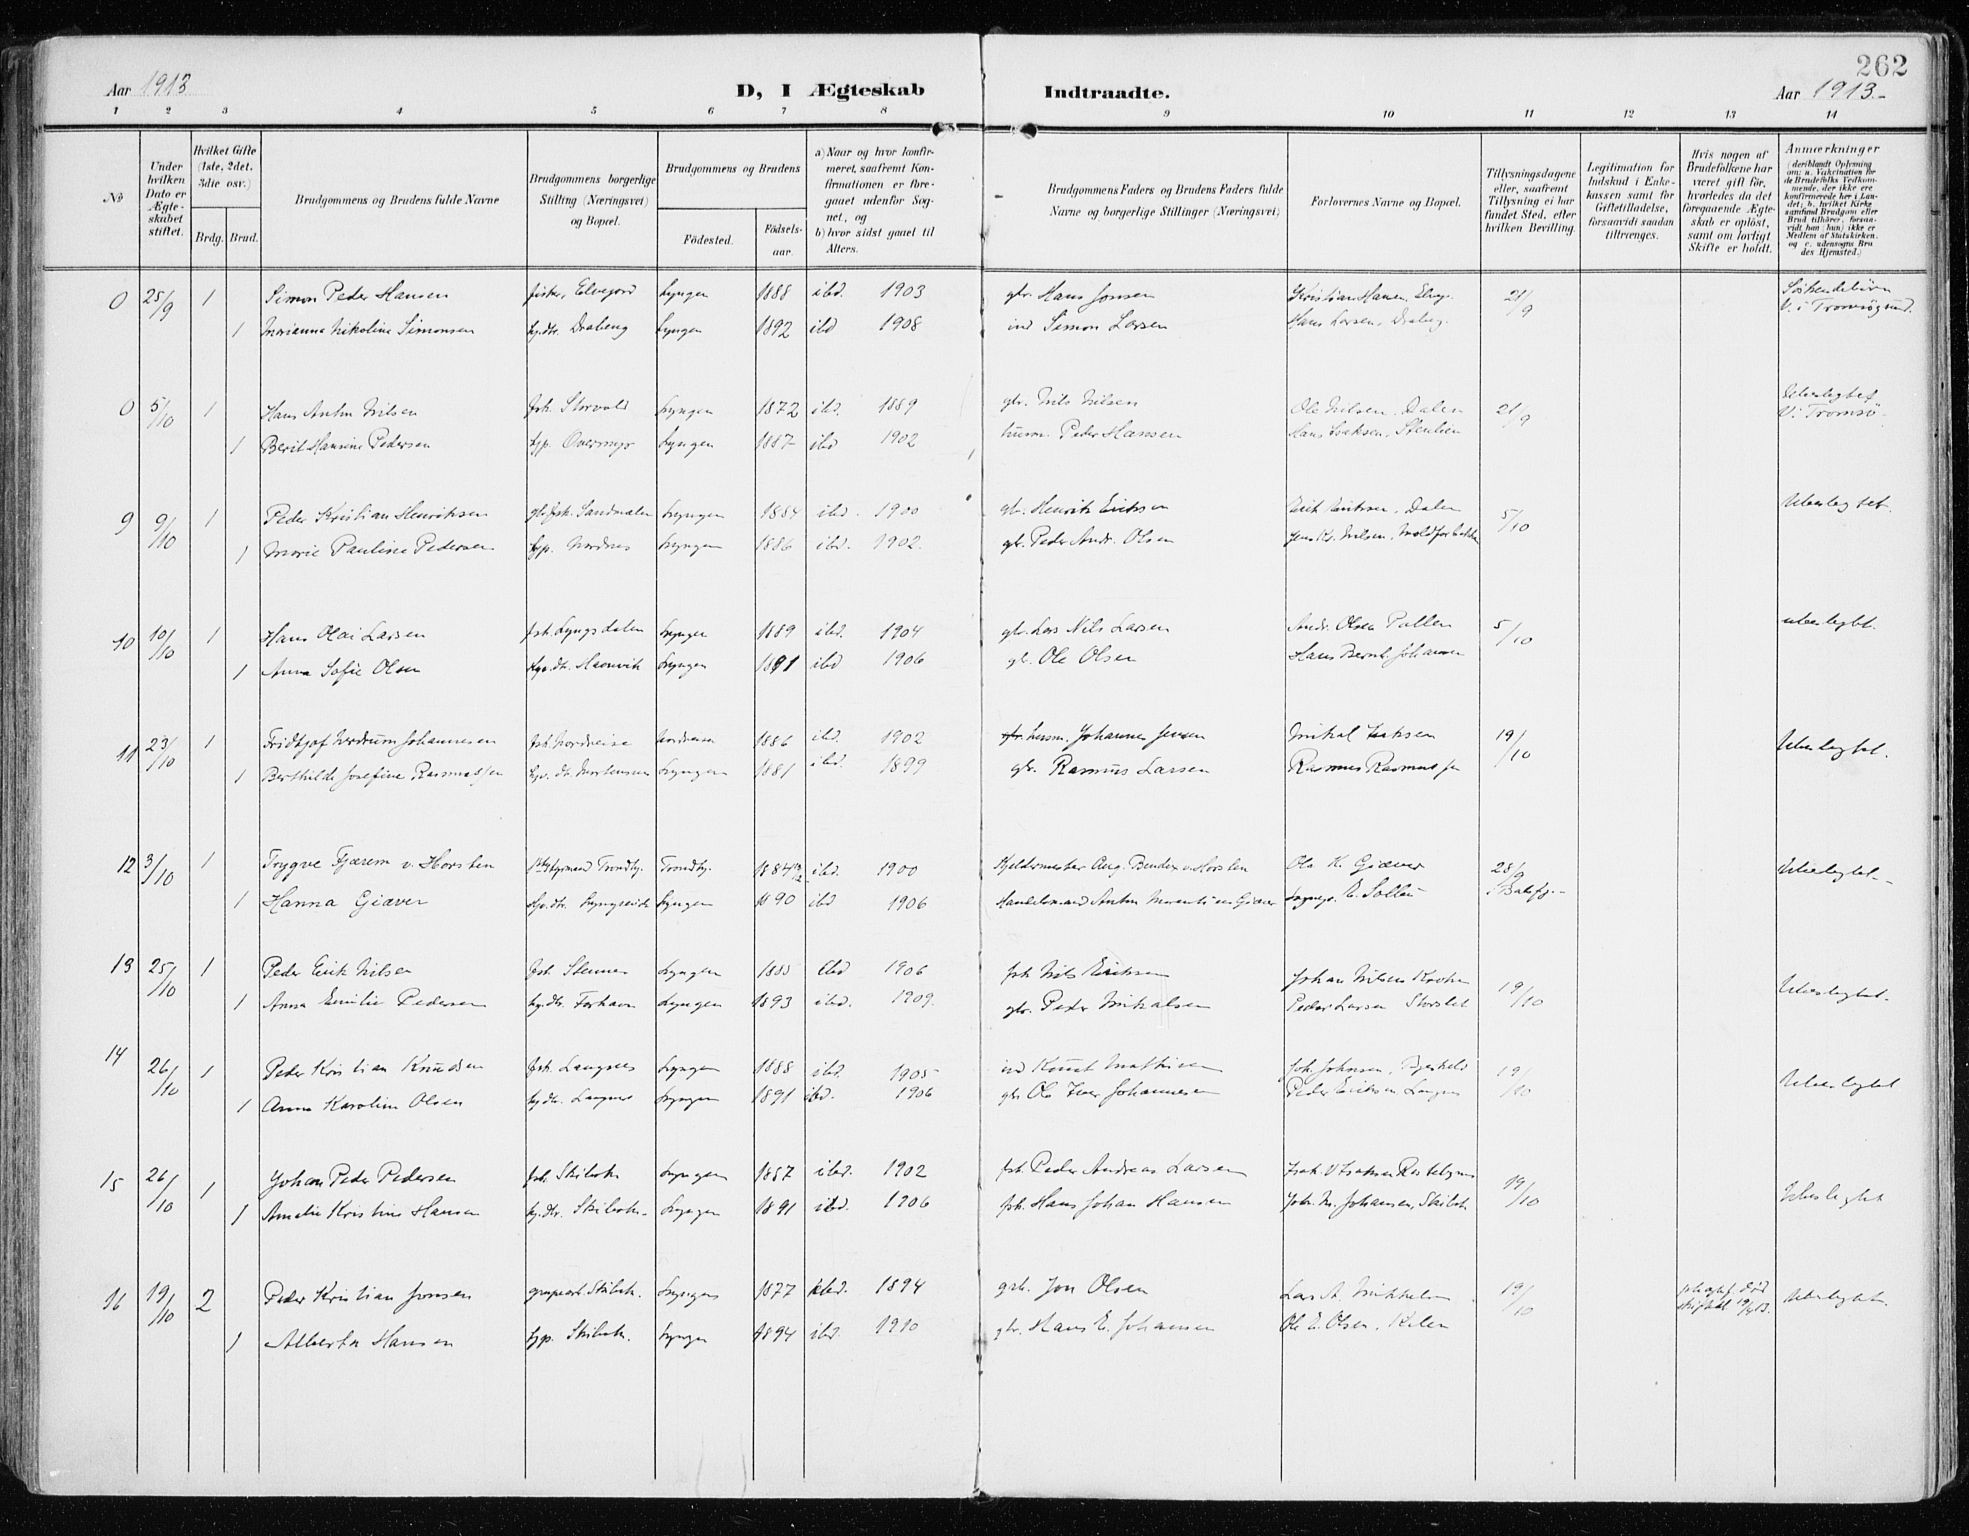 262
Aar 1913
D, I Ægteskab Indtraadte.
Aar 1913.-
1 2 3 4 5 6 7 8 9 10 11 12 13 14
No
Under hvilken Dato er Ægteskabet stiftet.
Hvilket Gifte (1ste, 2det, 3die osv.)
Brdg. Brud.
Brudgommens og Brudens fulde Navne
Brudgommens borgerlige Stilling (Næringsvei) og Bopæl.
Brudgommens og Brudens
Födested.
Födselsaar.
a) Naar og hvor konfirmeret, saafremt Konfirmationen er foregaaet udenfor Sognet, og
b) hvor sidst gaaet til Alters.
Brudgommens Faders og Brudens Faders fulde Navne og borgerlige Stillinger (Næringsvei)
Forlovernes Navne og Bopæl.
Tillysningsdagene eller, saafremt Tillysning ei har fundet Sted, efter hvilken Bevilling.
Legitimation for Indskud i Enkekassen samt for Giftetilladelse, forsaavidt saadan tiltrænges.
Hvis nogen af Brudefolkene har været gift för, hvorledes da det foregaaende Ægteskab er oplöst, samt om lovligt Skifte er holdt.
Anmærkninger (deriblandt Oplysning om: a. Vakcination for de Brudefolks Vedkommende, der ikke ere konfirmerede her i Landet; b. hvilket Kirkesamfund Brudgom eller Brud tilhører, forsaavidt han (hun) ikke er Medlem af Statskirken. og c. udensogns Brudes Hjemsted.)
0 25/9 1 Simon Peder Hansen fisker, Elvejord Lyngen 1888 ibd. 1903 gbr. Hans Jonsen Kristian Hansen, 21/9
1 Marianna Nikoline Simonsen Lyngen 1892 ibd 1908 ind Simon Larsen Hans Larsen, V. i Tromsøsund.
0 5/10 1 Hans Anton Nilsen fsk. Storvold Lyngen 1872 ibd. 1889 gbr. Nils Nilsen Ole Nilsen, Dalen 21/9 Ubeslegtet V. i Tromsö
1 Berit Hansine Pedersen Lyngen 1887 ibd 1902 husm. Peder Hansen Hans Isaksen, Steinlien
9 9/10 1 Peder Kristian Henriksen Sandmalen Lyngen 1884 ibd. 1900 gbr. Henrik Eriksen Erik Eriksen, Dalen 5/10 Ubeslegtet.
1 Marie Pauline Pedersen Nordnes Lyngen 1886 ibd. 1902. gbr. Peder Andr. Olsen Jens Kr. Nilsen,
10 10/10 1 Hans Olai Larsen fsk. Lyngsdalen Lyngen 1889 ibd. 1904 gbr. Lars Nils Larsen Andr. Olsen Pollen 5/10 ubeslegtet.
1 Anna Sofie Olsen Lyngen 1891 ibd 1906 gb. Ole Olsen Hans Bernh. Johansen
11 23/10 1 Fridtjof Johannesen fsk. Nordreisa Nordreisa 1886 ibd. 1902 husm. Johannes Jensen Mikal Isaksen 19/10 Ubeslegtet.
1 Berthilde Josefine Rasmussen Lyngen 1881 ibd. 1899 gbr. Rasmus Larsen Rasmus Rasmussen
12 3/10 1 Trygve Fjærem v. Horsten Trondhj. Trondhj. 1884 ibd. 1900 Kjeldermester Aug. Bendix v. Horsten Ole K. Giæver 28/9 Ubeslegtet-
1 Hanna Giæver Lyngseidet Lyngen 1890 ibd 1906 Handelsmand Anton Giæver Sognepr. E. Solleu Balsfj.-
13 25/10 1 Peder Erik Nilsen fsk. Lyngen ibd 1906 fsk. Nils Eriksen Johan Nilsen 19/10 Ubeslegtet.
1 Anna Emilie Pedersen Lyngen 1893 ibd. 1909. gbr. Peder Mikalsen Peder Larsen Storslet
14 26/10 1 Peder Kristian Knudsen fsk. Langnes Lyngen 1888 ibd. 1905 ind Knut Mathisen Joh. Johnsen, 19/10 Ubeslegtet
1 Anna Karoline Olsen Langnes Lyngen 1891 ibd. 1906 gbr. Ole Iver Johannesen Peder Eriksen Langnes
15 26/10 1 Johan Peder Pedersen fsk. Skibotn Lyngen 1887 ibd. 1902 fsk. Peder Andreas Larsen Isak 19/10 Ubeslegtet
1 Amalie Kristine Hansen Skibotn. Lyngen 1891 ibd. 1906 fsk. Hans Johan Hansen Joh. M. Johansen, Skibotn
16 19/10 2 Peder Kristian Jonsen grubearb. Skibotn. Lyngen 1877 ibd. 1894 grb. Jon Olsen Lars A. Mikkelsen 19/10 død Ubeslegtet.
1 Alberta Hansen Skibotn. Lyngen 1894 ibd. 1910 gbr. Hans E. Johansen Ole E. Olsen, Kilen